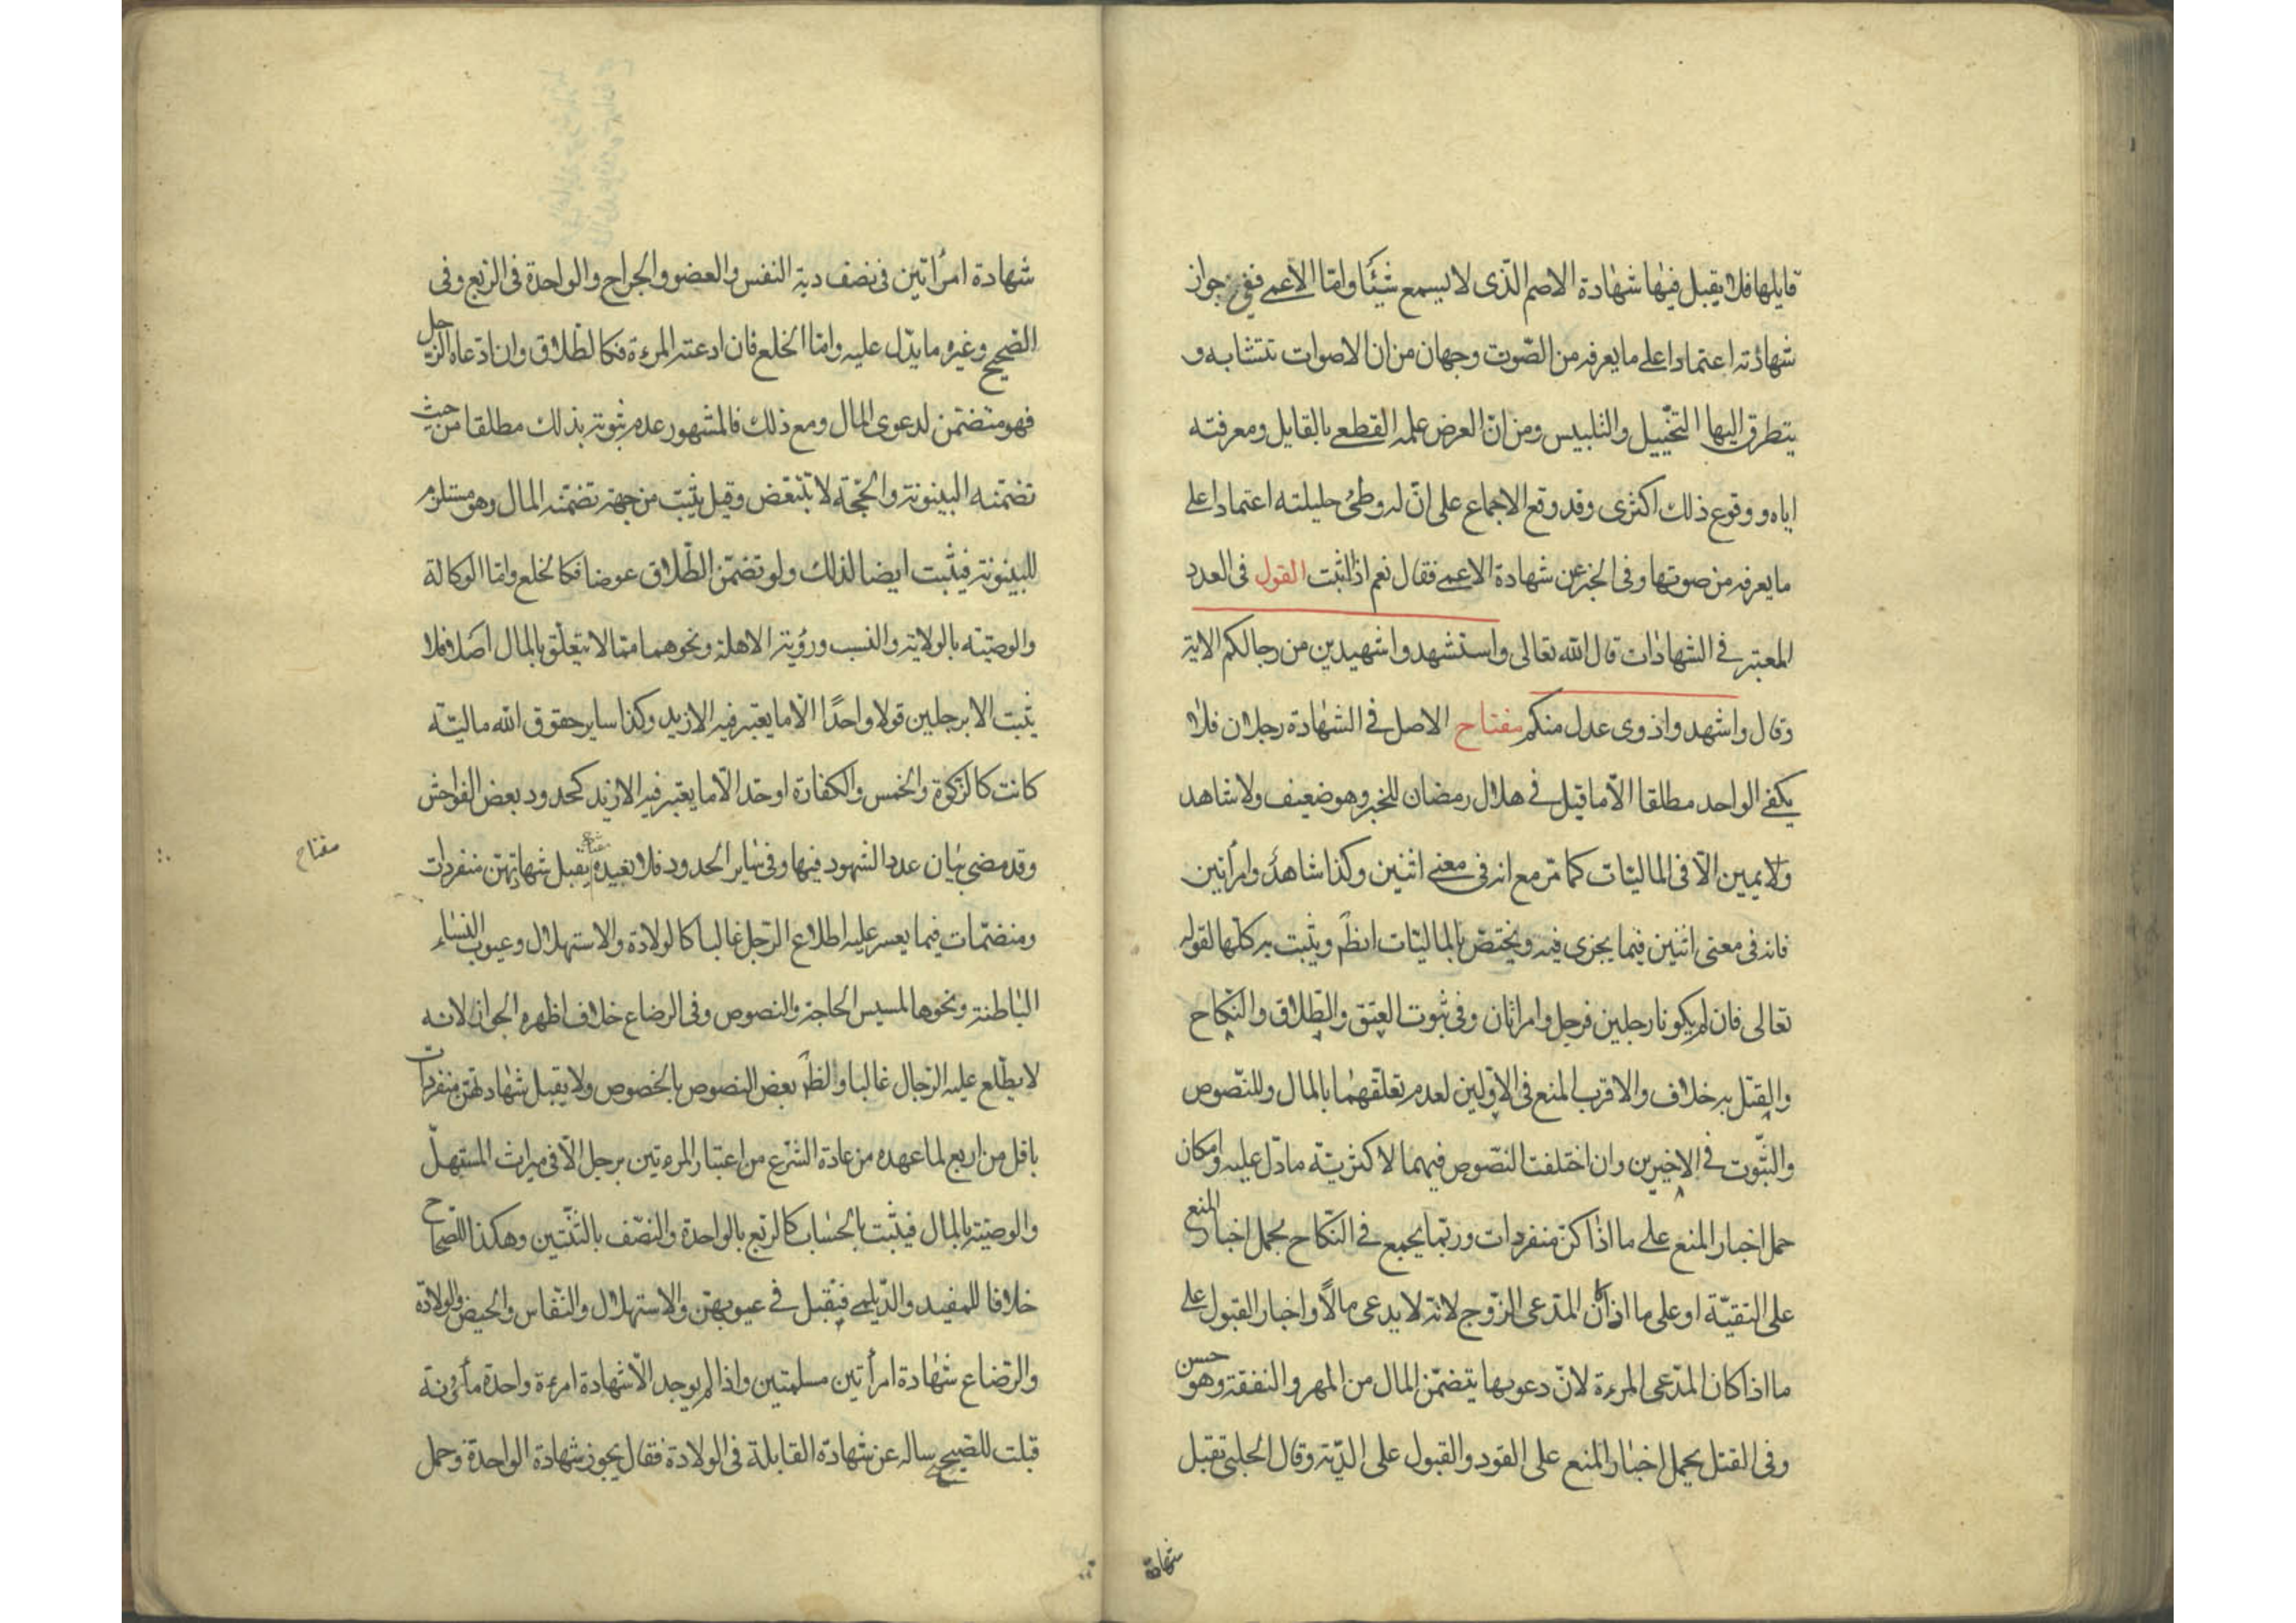 قايلها فلا يقبل فيها شهادة الاصم الذى لا يسمع شيئا واما الاعمى ففى جواز
شهادته اعتمادا على ما يعرفه من الصوت وجهان من ان الاصوات تتشابه و
يتطرق اليها التخييل والتلبيس ومن ان الغرض علمه القطعى بالقايل ومعرفته
اياه ووقوع ذلك اكثرى وقد وقع الاجماع على ان له وطئ حليلته اعتمادا على
ما يعرفه من صوتها وفى الخبر عن شهادة الاعمى فقال نعم اذا اثبت القول فى العدد
المعتبر فى الشهادات قال الله تعالى واستشهدوا شهيدين من رجالكم الاية
وقال واشهدوا ذوى عدل منكم مفتاح الاصل فى الشهادة رجلان فلا
يكفى الواحد مطلقا الا ما قيل فى هلال رمضان للخبر وهو ضعيف ولا شاهد
ولا يمين الا فى الماليات كما مر مع انه فى معنى اثنين وكذا شاهد وامرأتين
فانه فى معنى اثنين فيما يجزى فيه ويختص بالماليات ايظ ويثبت به كلها لقوله
تعالى فان لم يكونا رجلين فرجل وامراتان وفى ثبوت العتق والطلاق والنكاح
والقتل به خلاف والاقرب المنع فى الاولين لعدم تعلقهما بالمال وللنصوص
والثبوت فى الاخيرين وان اختلفت النصوص فيهما لاكثرية ما دل عليه وامكان
حمل اخبار المنع على ما اذا كن منفردات وربما يجمع فى النكاح بحمل اخبار المنع
على التقية او على ما اذا كان المدعى الزوج لانه لا يدعى مالا واخبار القبول على
ما اذا كان المدعى المرءة لان دعويها يتضمن المال من المهر والنفقة وهو حسن
وفى القتل بحمل اخبار المنع على القود والقبول على الدية وقال الحلبى تقبل
شهادة
شهادة امرأتين فى نصف دية النفس والعضو والجراح والواحدة فى الربع وفى
الصحيح وغيره ما يدل عليه واما الخلع فان ادعته المرءة فكالطلاق وان ادعاه الرجل
فهو متضمن لدعوى المال ومع ذلك فالمشهور عدم ثبوته بذلك مطلقا من حيث
تضمنه البينونة والحجة لا تتبعض وقيل يثبت من جهة تضمنه المال وهو مستلزم
للبينونة فيثبت ايضا لذلك ولو تضمن الطلاق عوضا فكالخلع واما الوكالة
والوصية بالولاية والنسب ورؤية الاهلة ونحوهما مما لا يتعلق بالمال اصلا فلا
يثبت الا برجلين قولا واحدا الا ما يعتبر فيه الازيد وكذا ساير حقوق الله مالية
كانت كالزكوة والخمس والكفارة او حدا الا ما يعتبر فيه الازيد كحدود بعض الفواحش
وقد مضى بيان عدد الشهود فيها وفى ساير الحدود فلا نعيده يقبل شهادتهن منفردات
مفتاح
ومنضمات فيما يعسر عليه اطلاع الرجل غالبا كالولادة والاستهلال وعيوب النساء
الباطنة ونحوها لمسيس الحاجة والنصوص وفى الرضاع خلاف اظهره الجواز لانه
لا يطلع عليه الرجال غالبا والظر بعض النصوص بالخصوص ولا يقبل شهادتهن منفردات
باقل من اربع لما عهده من عادة الشرع من اعتبار المرءتين برجل الا فى ميراث المستهل
والوصية بالمال فيثبت بالحساب كالربع بالواحدة والنصف بالثنتين وهكذا للصحاح
خلافا للمفيد والديلمى فتقبل فى عيوبهن والاستهلال والنفاس والحيض والولادة
والرضاع شهادة امرأتين مسلمتين واذا لم يوجد الا شهادة امرءة واحدة مأمونة
قبلت للصحيح ساله عن شهادة القابلة فى الولادة فقال يجوز شهادة الواحدة وحمل